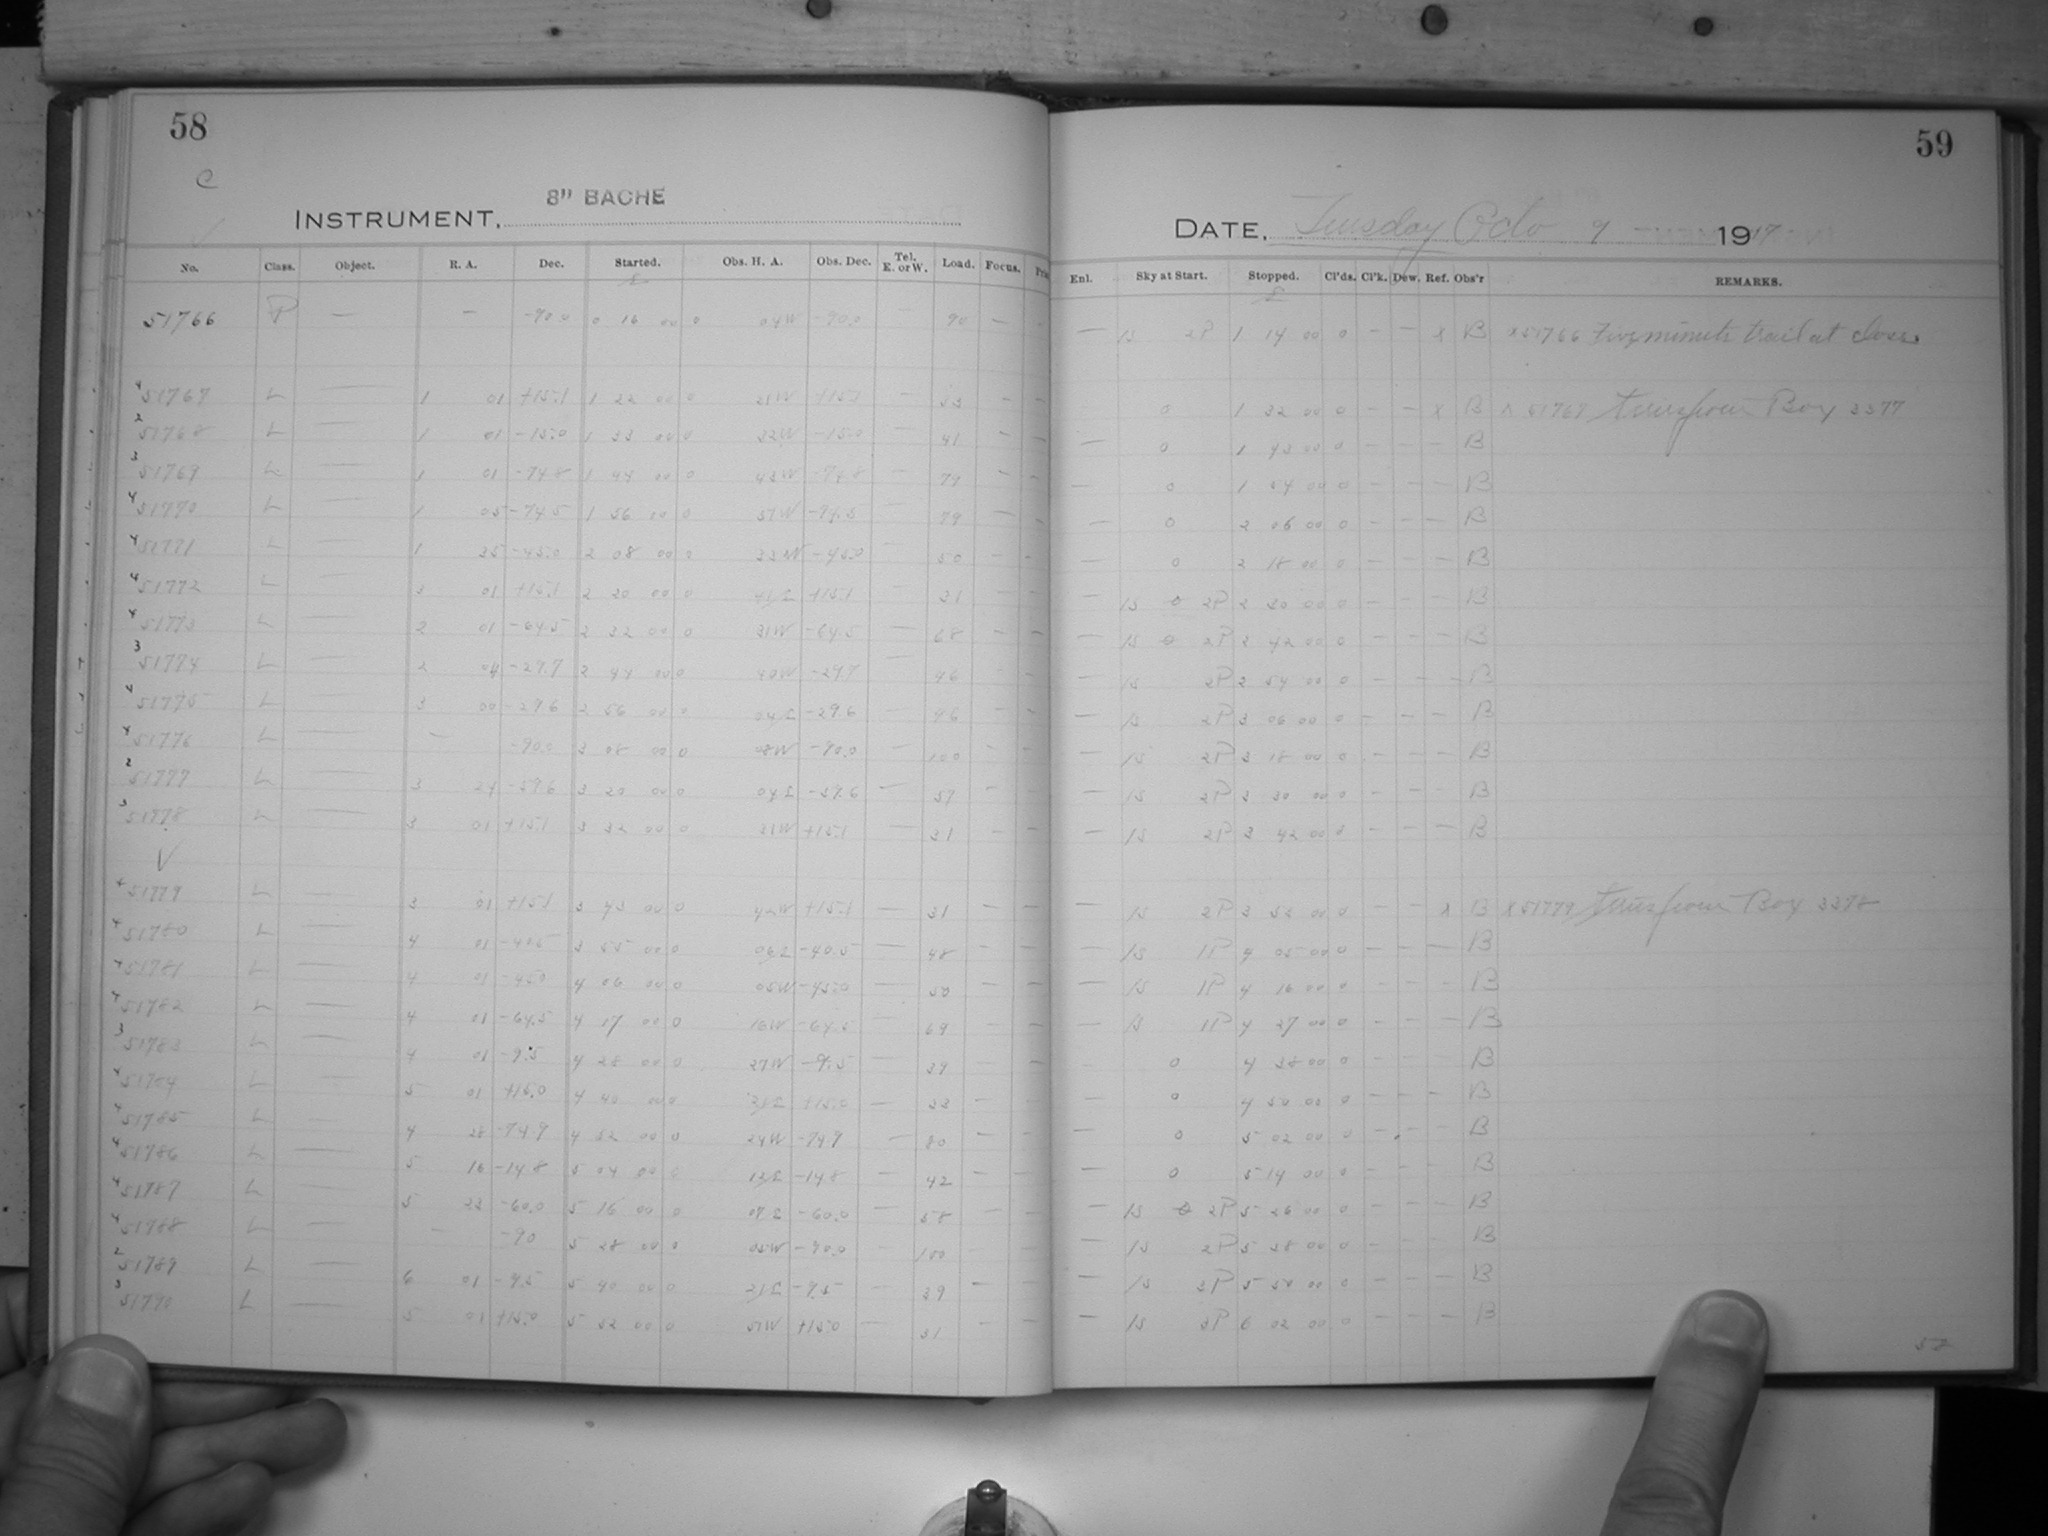 58
C
8" BACHE
INSTRUMENT,
No. Class. Object. R. A. Dec. Started. Obs. H. A. Obs. Dec. Tel. E. or W. Load. Focus.
51766 P — — -90.0 0 16 00 0 04W -90.0 — 90 —
51767 L — 1 01 +15.1 1 22 00 0 21W +15.1 — 33 —
51768 L — 1 01 -15.0 1 33 00 0 32W -15.0 — 41 —
51769 L — 1 01 -74.8 1 44 00 0 43W -74.8 — 79 —
51770 L — 1 05 -74.5 1 56 00 0 51W -74.5 — 79 —
51771 L — 1 35 -45.0 2 08 00 0 33W -45.0 — 50 —
51772 L — 3 01 +15.1 2 20 00 0 41E +15.1 — 31 —
51773 L — 2 01 -64.5 2 32 00 0 31W -64.5 — 68 —
51774 L — 2 04 -29.7 2 44 00 0 40W -29.7 — 46 —
51775 L — 3 00 -29.6 2 56 00 0 04E -29.6 — 46 —
51776 L — — -90.0 3 08 00 0 -90.0 — 100 —
51777 L — 3 24 -59.6 3 20 00 0 04E -59.6 — 57 —
51778 L — 3 01 +15.1 3 32 00 0 31W +15.1 — 31 —
51779 L — 3 01 +15.1 3 43 00 0 42W +15.1 — 31 —
51780 L — 4 01 -40.5 3 55 00 0 06E -40.5 — 48 —
51781 L — 4 01 -45.0 4 06 00 0 05W -45.0 — 50 —
51782 L — 4 01 -64.5 4 17 00 0 16W -64.5 — 69 —
51783 L — 4 01 -9.5 4 28 00 0 27W -9.5 — 39 —
51784 L — 5 01 +15.0 4 40 00 0 21E +15.0 — 33 —
51785 L — 4 28 -74.9 4 52 00 0 24W -74.9 — 80 —
51786 L — 5 16 -14.8 5 04 00 0 12E -14.8 — 42 —
51787 L — 5 23 -60.0 5 16 00 0 07E -60.0 — 58 —
51788 L — -90 5 28 00 0 05W -90.0 — 100 —
51789 L — 6 01 -9.5 5 40 00 0 21E -9.5 — 39 —
51790 L — 5 01 +15.0 5 52 00 0 51W +15.0 — 31 —
59
DATE, Tuesday Octo 9 1917
Enl. Sky at Start. Stopped. Cl'ds. Cl'k. Dew. Ref. Obs'r REMARKS.
— 1S 2P 1 14 00 0 — — x B x 51766 Five minute trail at close
0 1 32 00 0 — — x B x 51767 Box 3377
— 0 1 43 00 0 — — — B
— 0 1 54 00 0 — — — B
— 0 2 06 00 0 — — — B
— 0 2 18 00 0 — — — B
— 1S 2P 2 30 00 0 — — — B
— 1S 2P 2 42 00 0 — — — B
— 1S 2P 2 54 00 0 — — — B
— 1S 2P 3 06 00 0 — — — B
— 1S 2P 3 18 00 0 — — — B
— 1S 2P 3 30 00 0 — — — B
— 1S 2P 3 42 00 0 — — — B
— 1S 2P 3 53 00 0 — — x B x 51779 Box 3378
— 1S 1P 4 05 00 0 — — — B
— 1S 1P 4 16 00 0 — — — B
— 1S 1P 4 27 00 0 — — — B
0 4 38 00 0 — — — B
— 0 4 50 00 0 — — — B
— 0 5 02 00 0 — — — B
— 0 5 14 00 0 — — — B
— 1S 2P 5 26 00 0 — — — B
— 1S 2P 5 38 00 0 — — — B
— 1S 3P 5 50 00 0 — — — B
— 1S 3P 6 02 00 0 — — — B